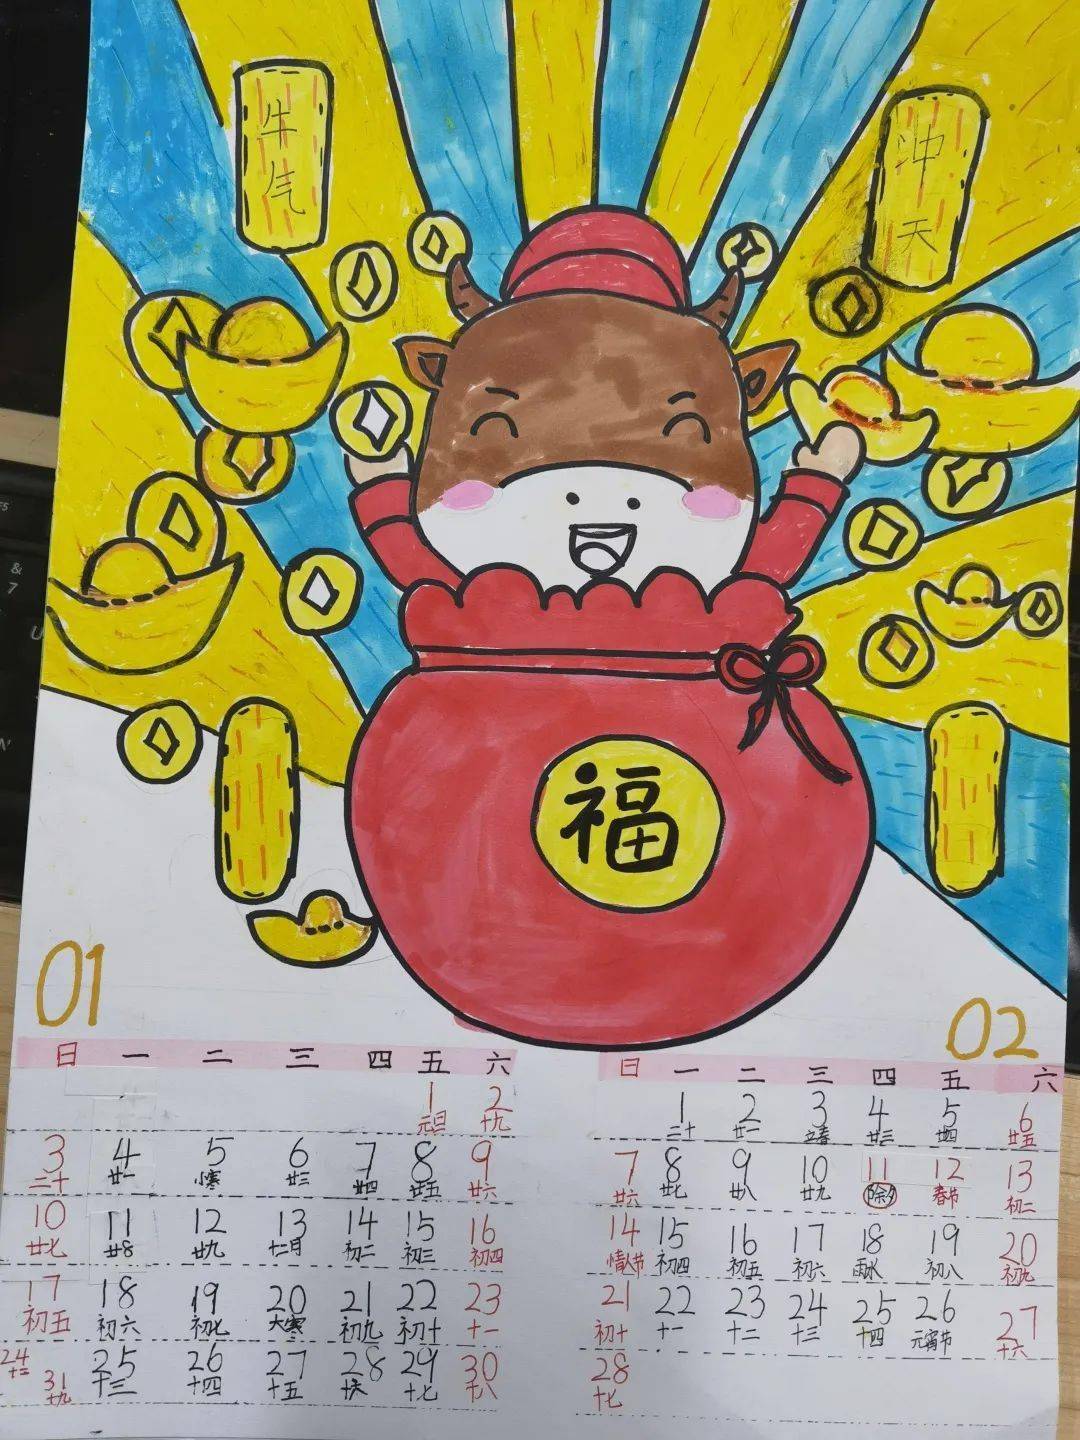 牛气
冲天
福
01
日 一 二 三 四 五 六
1 2
元旦 十九
3 4 5 6 7 8 9
二十 廿一 小寒 廿三 廿四 廿五 廿六
10 11 12 13 14 15 16
廿七 廿8 廿九 十二月 初二 初三 初四
17 18 19 20 21 22 23
初五 初六 初七 大寒 初九 初十 十一
24 25 26 27 28 29 30
十二 十三 十四 十五 十六 十七 十八
31
十九
02
日 一 二 三 四 五 六
1 2 3 4 5 6
二十 廿一 立春 廿三 廿四 廿五
7 8 9 10 11 12 13
廿六 廿七 廿八 廿九 除夕 春节 初二
14 15 16 17 18 19 20
情人节 初四 初五 初六 雨水 初八 初九
21 22 23 24 25 26 27
初十 十一 十二 十三 十四 元宵节 十六
28
十七